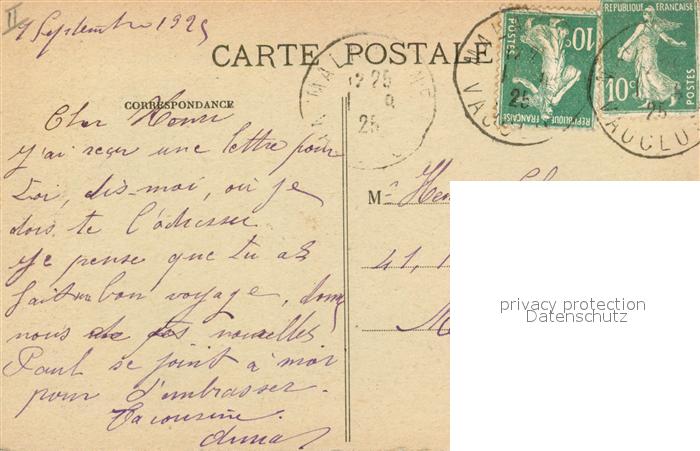 II
1 Septembre 1925
CARTE POSTALE
CORRESPONDANCE
Cher Henri
J'ai reçu une lettre pour
toi, dis-moi, où je
dois te l'adresser
Je pense que tu as
fait un bon voyage, donne
nous de tes nouvelles
Paul se joint à moi
pour t'embrasser.
Ta cousine.
12 25
1 9
25
RÉPUBLIQUE FRANÇAISE
POSTES
10c
VAUCLUSE
25
RÉPUBLIQUE FRANÇAISE
POSTES
10c
VAUCLUSE
25
M
41,
privacy protection
Datenschutz